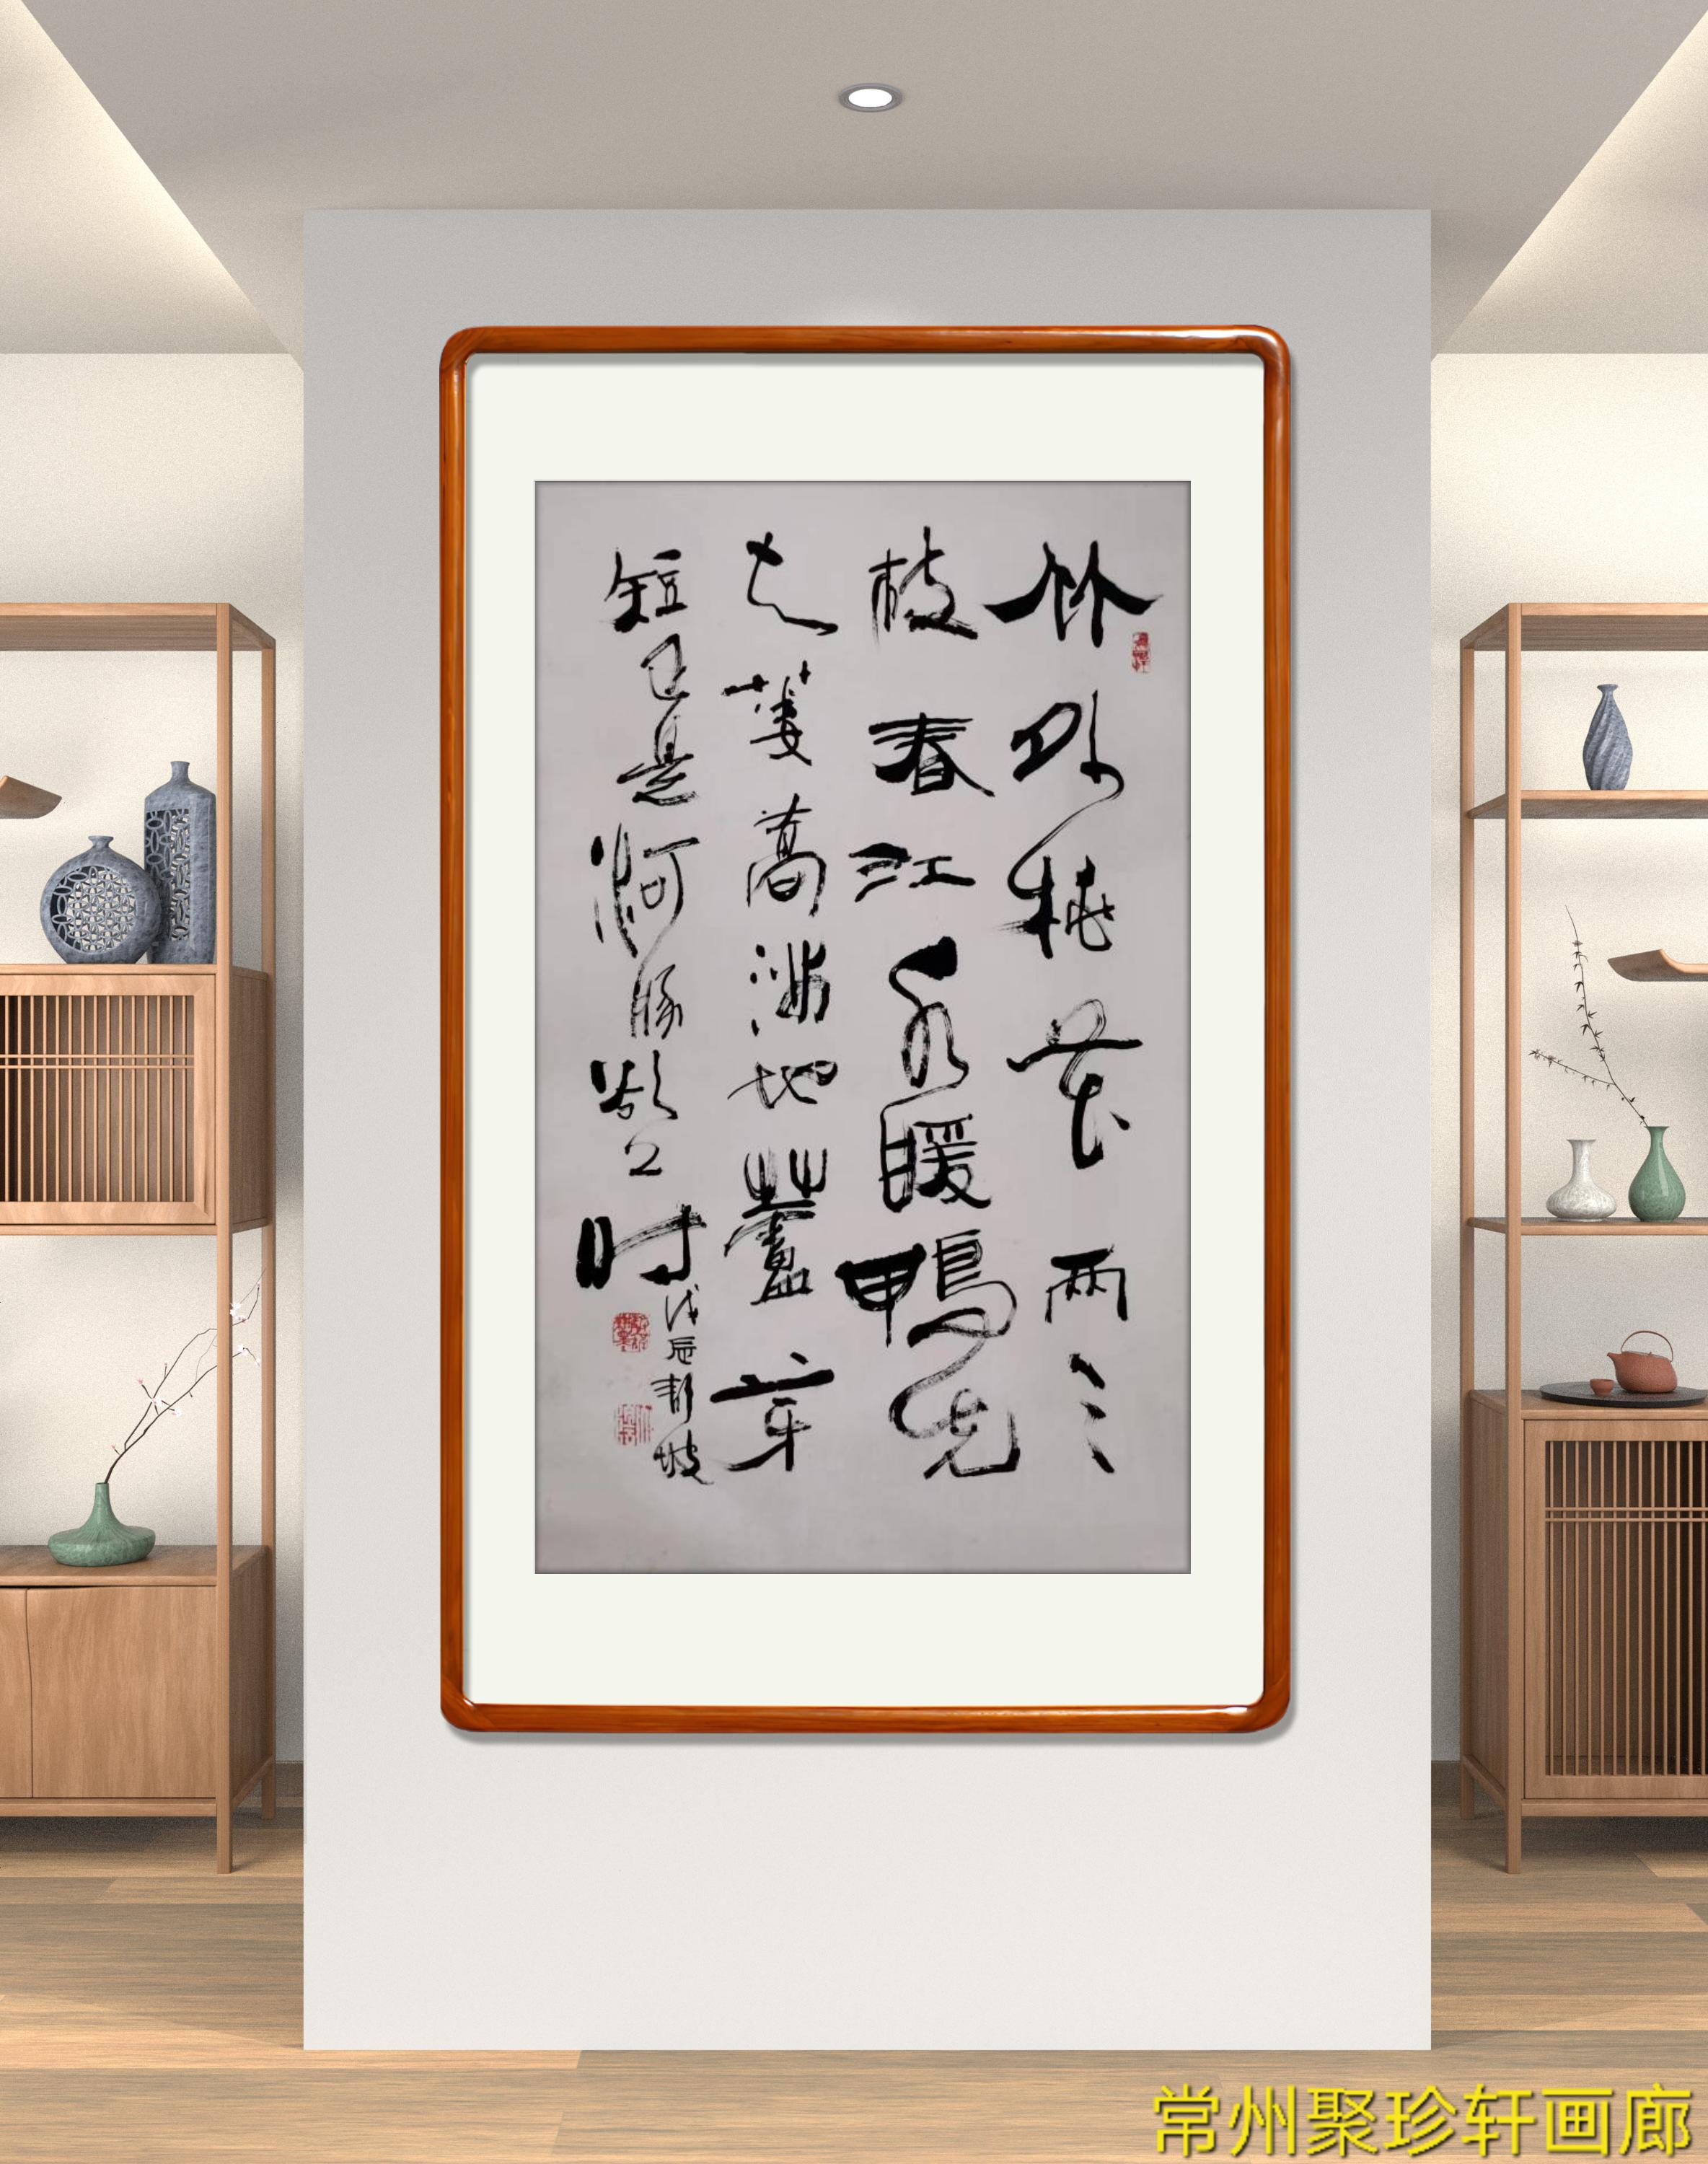 竹外桃花兩三
枝春江水暖鴨先
知蔞蒿滿地蘆芽
短正是河豚欲上时戊辰坡
常州聚珍轩画廊